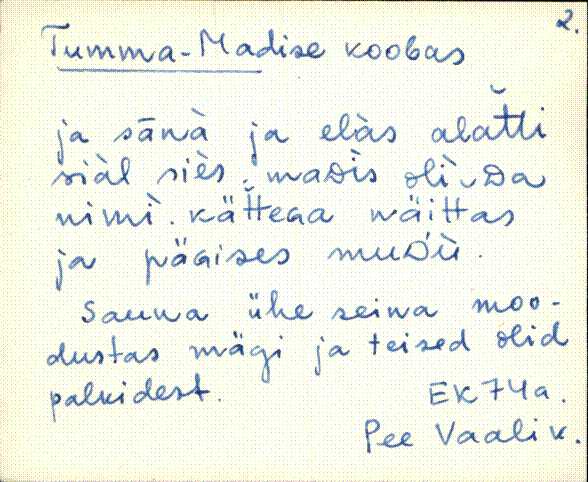 2.
Tumma-Madise koobas
ja sānà ja elàs alat̆ti
siàl siès. maᴅìs olì ᴅa
nimì. kät̆teɢa näittas
ja päɢises muᴅù.
Sauna ühe seina moo-
dustas mägi ja teised olid
palkidest.
EK74a.
Pee Vaalik.